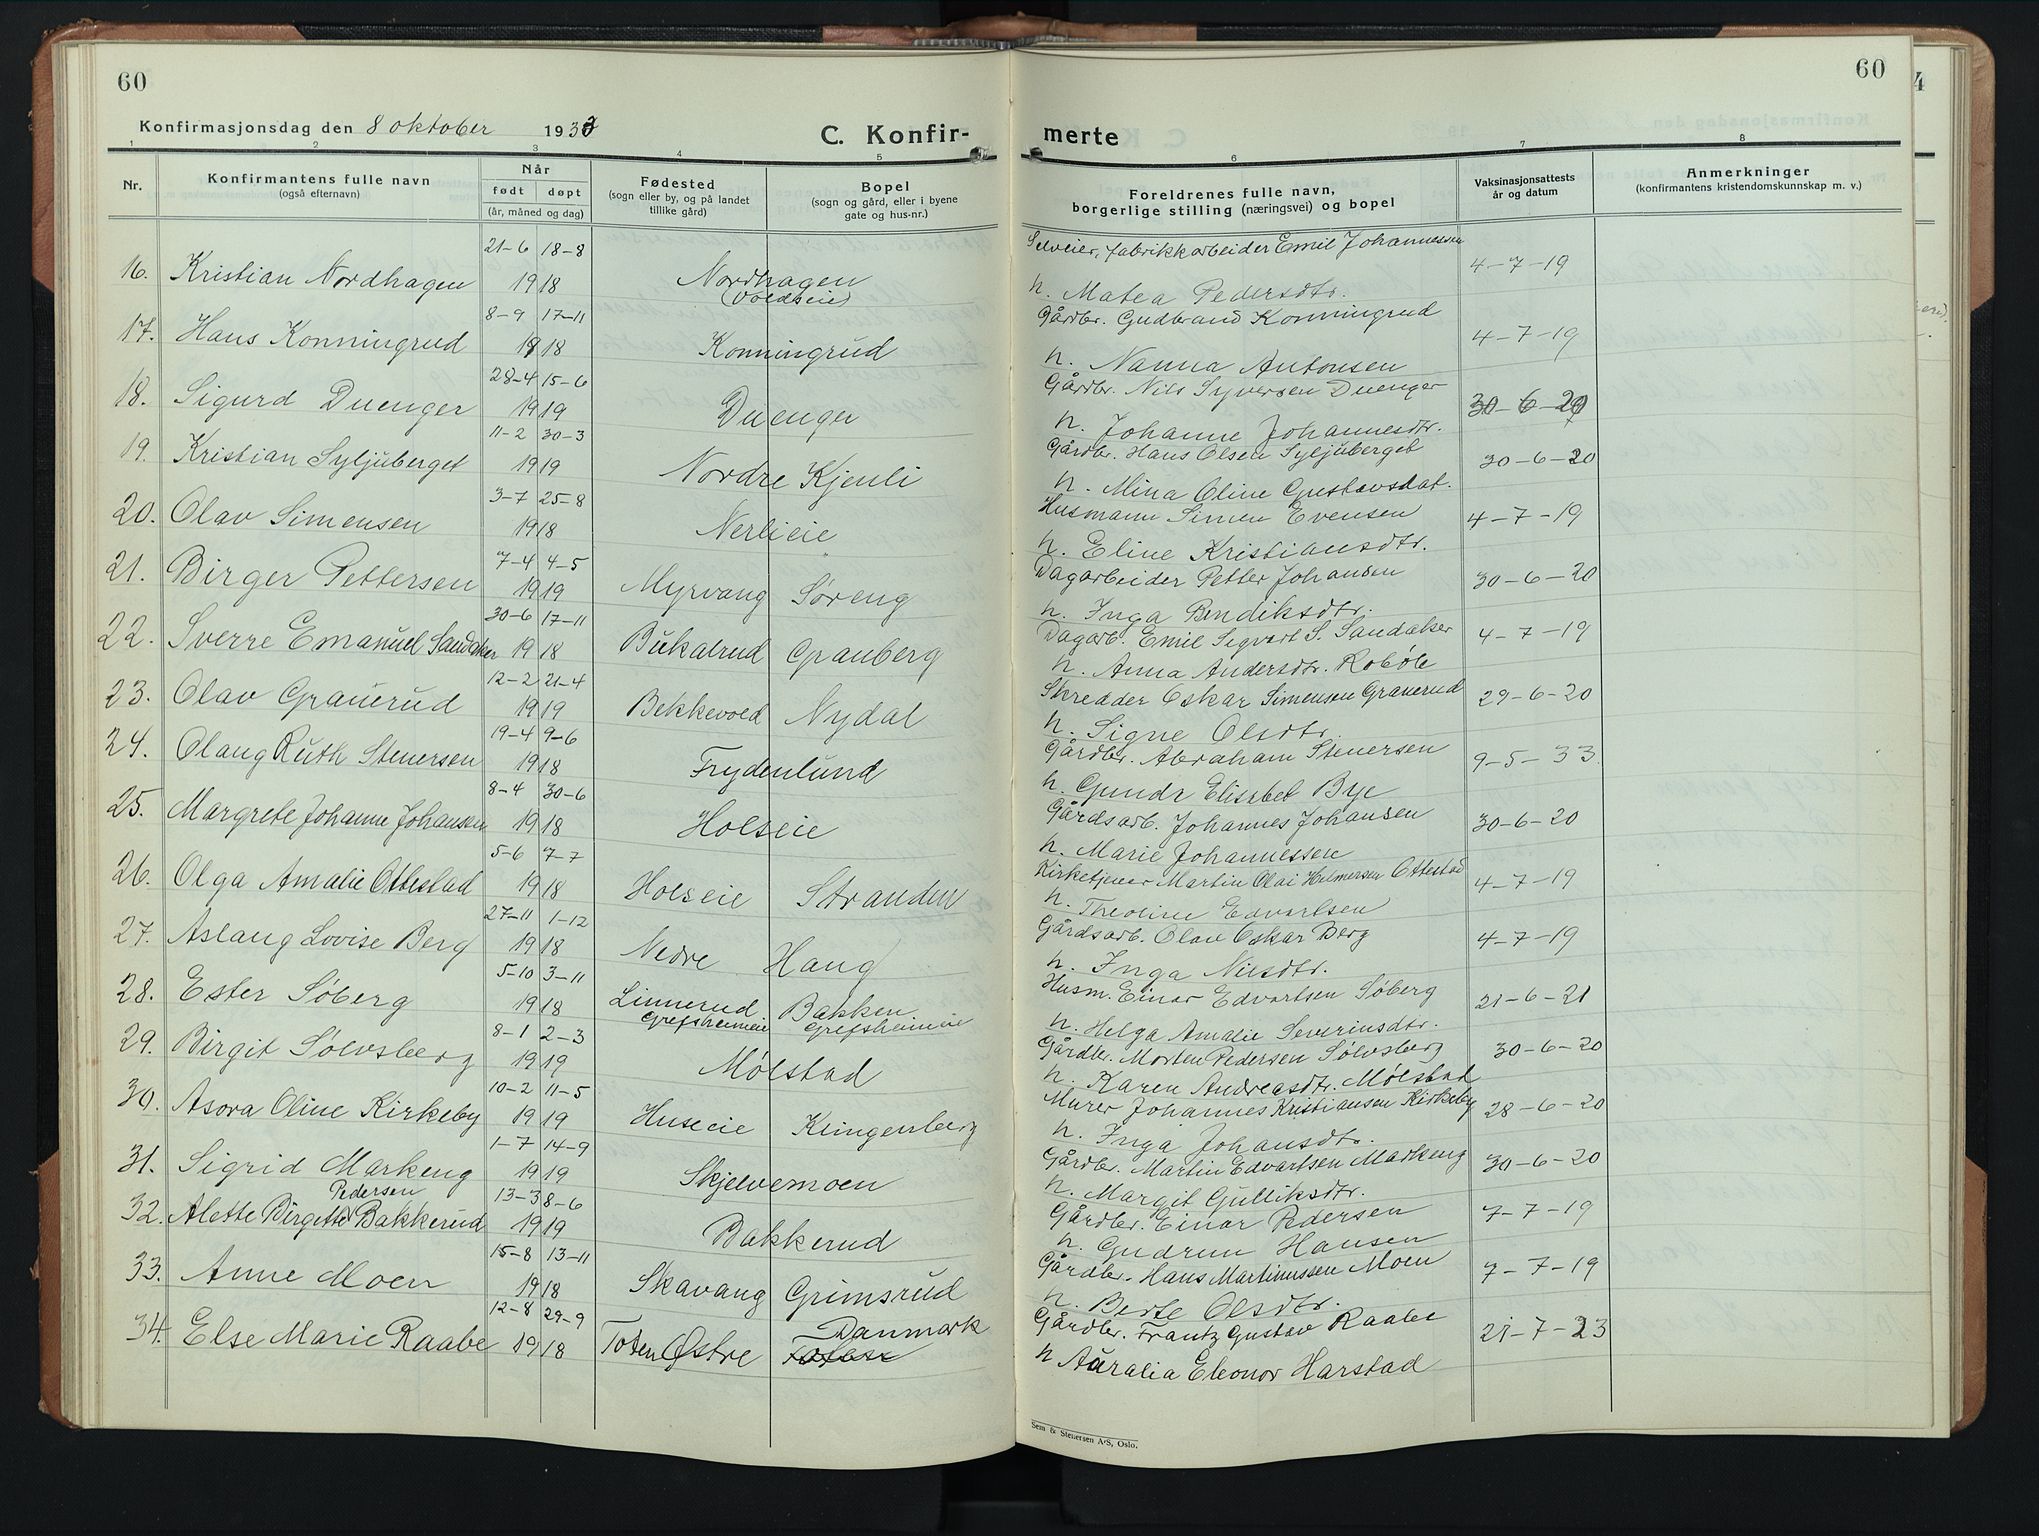 60
Konfirmasjonsdag den 8 oktober 1933
C. Konfir-
1 2 3 4 5
Nr. Konfirmantens fulle navn (også efternavn) Når født døpt (år, måned og dag) Fødested (sogn eller by, og på landet tillike gård) Bopel (sogn og gård, eller i byene gate og hus-nr.)
21-6 18-8
16. Kristian Nordhagen 1918 Nordhagen
(Voldseie)
8-9 17-11
17. Hans Konningrud 1918 Konningrud
28-4 15-6
18. Sigurd Duenger 1919 Duenger
11-2 30-3
19. Kristian Syljuberget 1919 Nordre Kjenli
3-7 25-8
20. Olav Simensen 1918 Nerlieie
7-4 4-5
21. Birger Pettersen 1919 Myrvang Søreng
30-6 17-11
22. Sverre Emanuel Sandaker 1918 Bukalrud Granberg
12-2 21-4
23. Olav Granerud 1919 Bekkevold Nydal
19-4 9-6
24. Olaug Ruth Stenersen 1918 Frydenlund
8-4 30-6
25. Margrete Johanne Johansen 1918 Holseie
5-6 7-7
26. Olga Amalie Ottestad 1918 Holseie Stranden
27-11 1-12
27. Aslaug Lovise Berg 1918 Nedre Haug
5-10 3-11
28. Ester Søberg 1918 Linnerud Bakken
Grefsheimeie Grefsheimeie
8-1 2-3
29. Birgit Sølvsberg 1919 Mølstad
10-2 11-5
30. Asora Oline Kirkeby 1919 Huseie Klingenberg
1-7 14-9
31. Sigrid Markeng 1919 Skjelvemoen
Pedersen 13-3 8-6
32. Alette Birgitte Bakkerud 1919 Bakkerud
15-8 13-11
33. Anne Moen 1918 Skavang Grimsrud
12-8 29-9 Danmark
34. Else Marie Raabe 1918 Toten Østre
60
merte
6 7 8
Foreldrenes fulle navn, borgerlige stilling (næringsvei) og bopel Vaksinasjonsattests år og datum Anmerkninger (konfirmantens kristendomskunnskap m. v.)
Selveier, fabrikkarbeider Emil Johannessen 4-7-19
h. Matea Pedersdtr.
Gårdbr. Gudbrand Konningrud 4-7-19
h. Nanna Antonsen
Gårdbr. Nils Syversen Duenger 30-6-20
h. Johanne Johannesdtr.
Gårdbr. Hans Olsen Syljuberget 30-6-20
h. Mina Oline Gustavsdat.
Husmann Simen Evensen 4-7-19
h. Eline Kristiansdtr.
Dagarbeider Petter Johansen 30-6-20
h. Inga Bendiksdtr.
Dagarb. Emil Sigvart S. Sandaker 4-7-19
h. Anna Andersdtr. Robøle
Skredder Oskar Simensen Granerud 29-6-20
h. Signe Olsdtr.
Gårdbr. Abraham Stenersen 9-5-33
h. Gunda Elisabet Bye
Gårdsarb. Johannes Johansen 30-6-20
h. Marie Johannessen
Kirketjener Martin Olai Helmersen Ottestad 4-7-19
h. Theoline Edvartsen
Gårdsarb. Olav Oskar Berg 4-7-19
h. Inga Nilsdtr.
Husm. Einar Edvartsen Søberg 21-6-21
h. Helga Amalie Severinsdtr.
Gårdbr. Morten Pedersen Sølvsberg 30-6-20
h. Karen Andreasdtr. Mølstad
Murer Johannes Kristiansen Kirkeby 28-6-20
h. Inga Johansdtr.
Gårdbr. Martin Edvartsen Markeng 30-6-20
h. Margit Gulliksdtr.
Gårdbr. Einar Pedersen 7-7-19
h. Gudrun Hansen
Gårdbr. Hans Martinussen Moen 7-7-19
h. Berte Olsdtr.
Gårdbr. Frantz Gustav Raabe 21-7-23
h Auralia Eleonor Harstad
Sem & Stenersen A/S, Oslo.